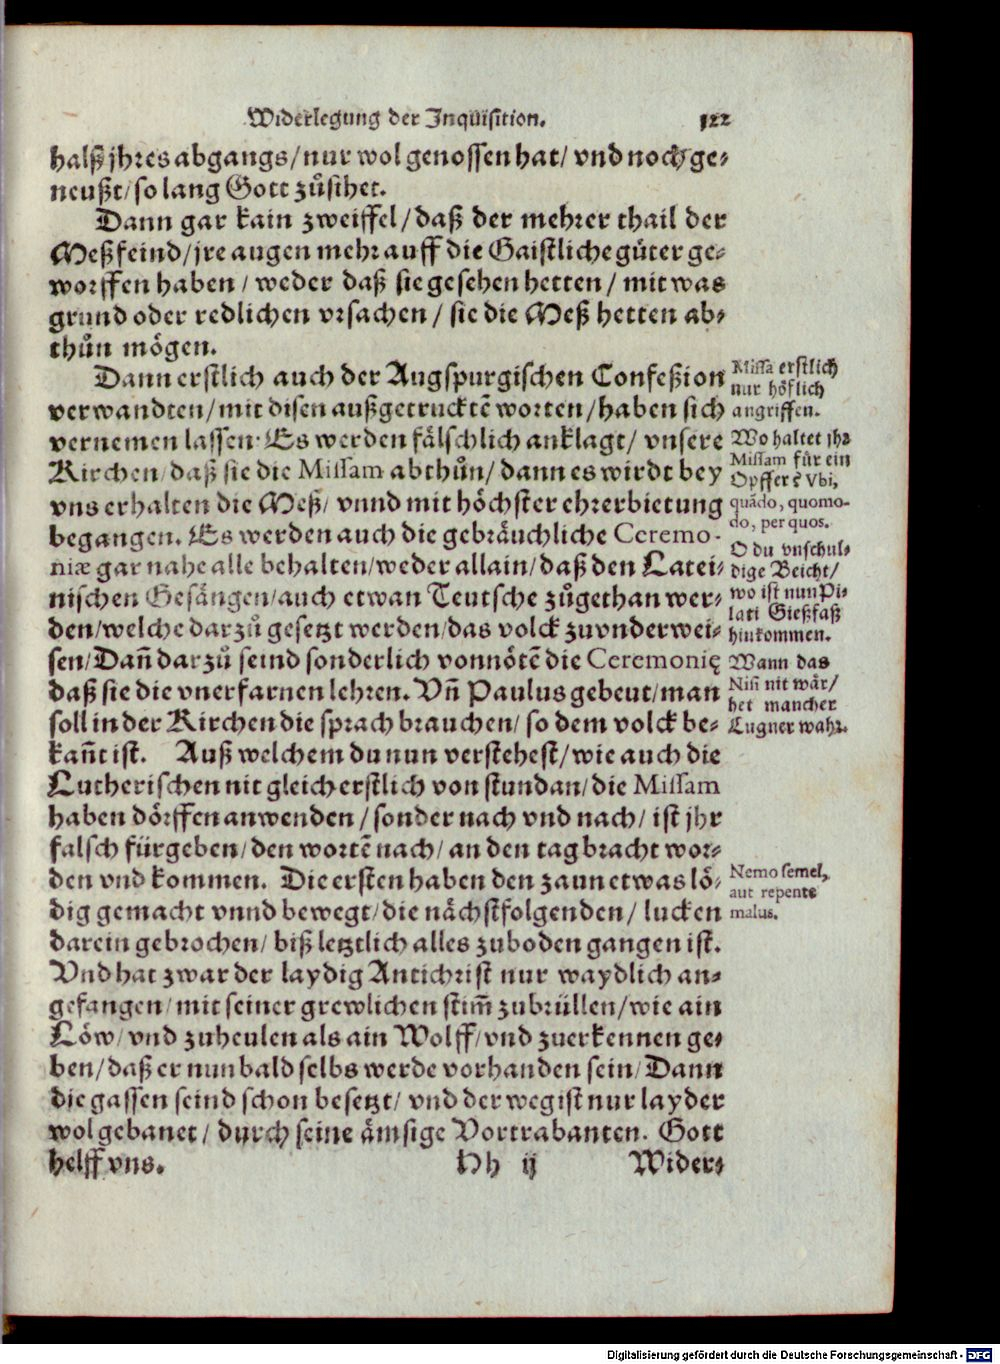 Widerlegung der Inquisition. 122
halß jhres abgangs/nur wol genossen hat/ vnd noch ge-
neußt/so lang Gott zůsihet.
Dann gar kain zweiffel/daß der mehrer thail der
Meßfeind/jre augen mehr auff die Gaistliche gůter ge-
worffen haben/ weder daß sie gesehen hetten/ mit was
grund oder redlichen vrsachen/ sie die Meß hetten ab-
thůn mögen.
Dann erstlich auch der Augspurgischen Confeßion
verwandten/mit disen außgetrucktẽ worten/haben sich
vernemen lassen. Es werden fälschlich anklagt/ vnsere
Kirchen/daß sie die Missam abthůn/ dann es wirdt bey
vns erhalten die Meß/ vnnd mit höchster ehrerbietung
begangen. Es werden auch die gebräuchliche Ceremo-
niæ gar nahe alle behalten/weder allain/daß den Latei-
nischen Gesängen/auch etwan Teutsche zůgethan wer-
den/welche darzů gesetzt werden/das volck zuvnderwei-
sen/Dañ darzů seind sonderlich vonnötẽ die Ceremonię
daß sie die vnerfarnen lehren. Vñ Paulus gebeut/man
soll in der Kirchen die sprach brauchen/ so dem volck be-
kañt ist. Auß welchem du nun verstehest/wie auch die
Lutherischen nit gleich erstlich von stundan/die Missam
haben dörffen anwenden/sonder nach vnd nach/ ist jhr
falsch fürgeben/den wortẽ nach/ an den tag bracht wor-
den vnd kommen. Die ersten haben den zaun etwas lö-
dig gemacht vnnd bewegt/die nächstfolgenden/ lucken
darein gebrochen/ biß letztlich alles zuboden gangen ist.
Vnd hat zwar der laydig Antichrist nur waydlich an-
gefangen/mit seiner grewlichen stim̃ zubrüllen/wie ain
Löw/vnd zuheulen als ain Wolff/vnd zuerkennen ge-
ben/daß er nun bald selbs werde vorhanden sein/Dann
die gassen seind schon besetzt/ vnd der weg ist nur layder
wol gebanet/ durch seine ämsige Vortrabanten. Gott
helff vns. Hh ij Wider-
Missa erstlich
nur höflich
angriffen.
Wo haltet jhr
Missam für ein
Opffer? Vbi,
quãdo, quomo-
do, per quos.
O du vnschul-
dige Beicht/
wo ist nun Pi-
lati Gießfaß
hinkommen.
Wann das
Nisi nit wär/
het mancher
Lugner wahr.
Nemo semel,
aut repente
malus.
Digitalisierung gefördert durch die Deutsche Forschungsgemeinschaft - DFG